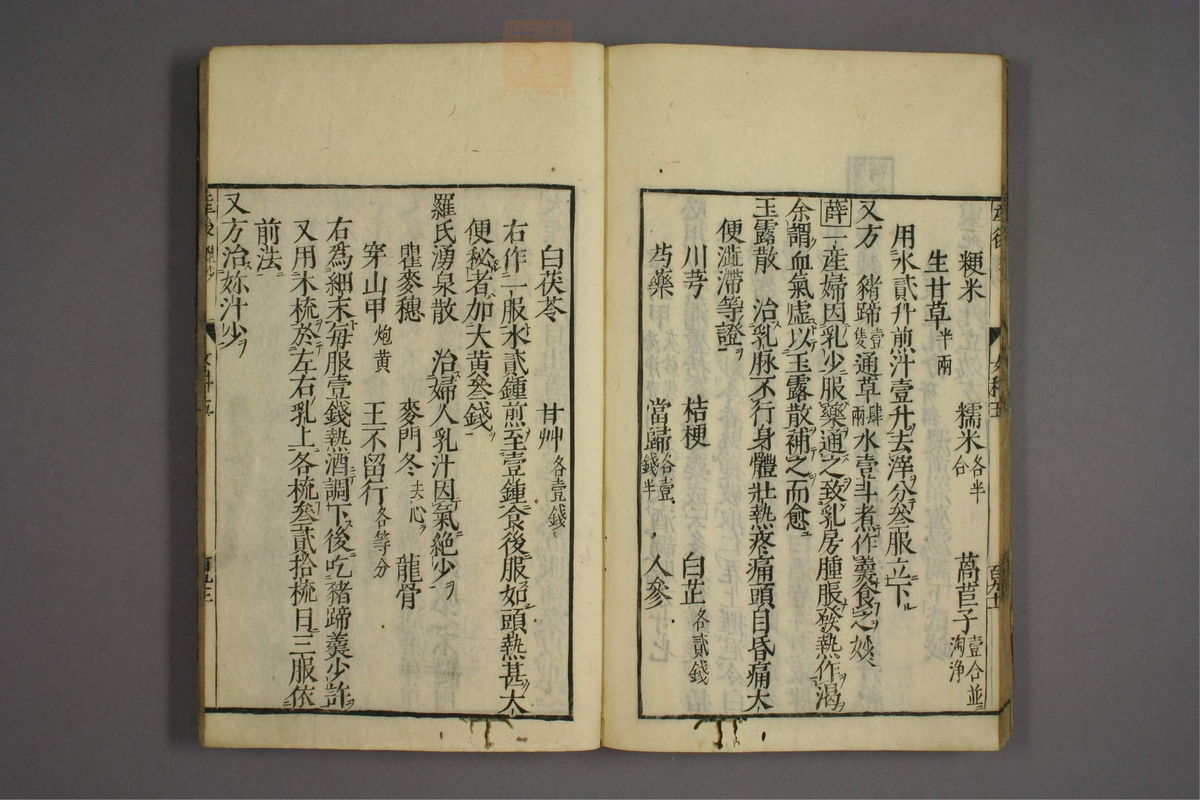 粳米 糯米各半合 萵苣子壹合並淘淨
生甘草半兩
用水貳升煎汁壹升去滓分叄服立下
又方 豬蹄壹隻通草肆兩水壹斗煮作羹食之妙
薛一産婦因乳少服藥通之致乳房腫脹發熱作渴
余謂血氣虛以玉露散補之而愈
玉露散 治乳脉不行身體壯熱疼痛頭目昏痛大
便澁滯等證
川芎 桔梗 白芷各貳錢
芍藥 當歸各壹錢半 人參
白茯苓 甘艸各壹錢
右作一服水貳鍾煎至壹鍾食後服如頭熱甚大
便秘者加大黄叄錢
羅氏湧泉散 治婦人乳汁因氣絶少
瞿麥穗 麥門冬去心 龍骨
穿山甲炮黄 王不留行各等分
右爲細末每服壹錢熱酒調下後吃豬蹄羹少許
又用木梳於左右乳上各梳叄貳拾梳日三服依
前法
又方治妳汁少